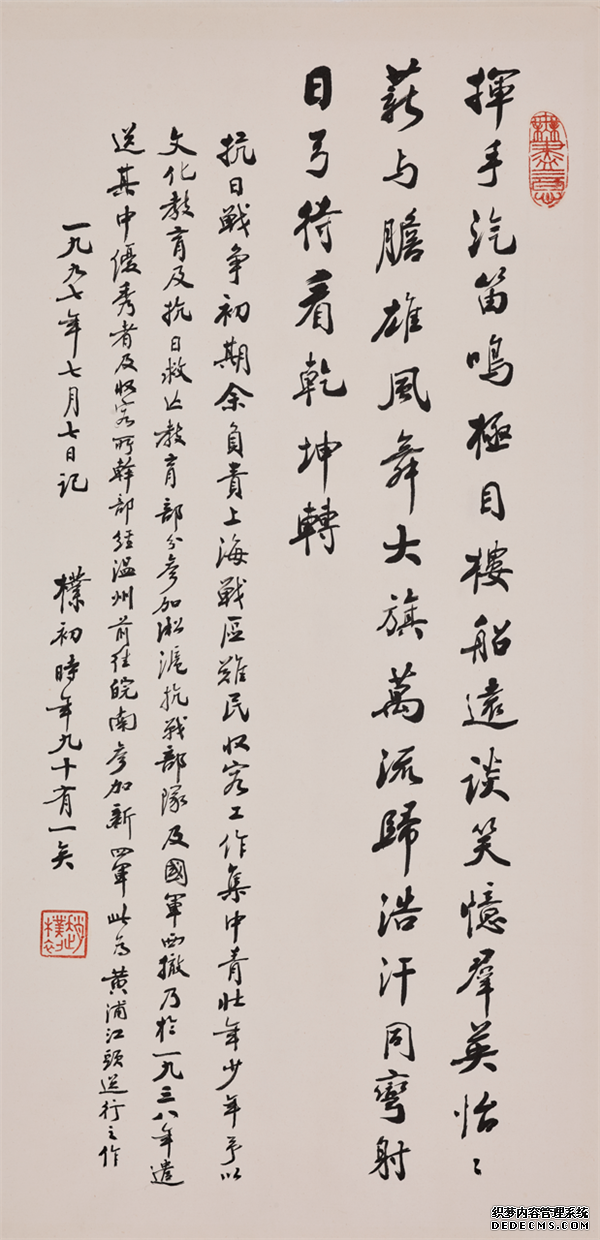 無盡意
揮手汽笛鳴極目樓船遠談笑憶羣英怡〻
薪与膽雄風舞大旗萬流歸浩汗同彎射
日弓待看乾坤轉
抗日戰争初期余負責上海戰區難民收容工作集中青壯年少年予以
文化教育及抗日救亡教育部分參加淞滬抗戰部隊及國軍西撤乃於一九三八年遣
送其中優秀者及收容所幹部經温州前往皖南參加新四軍此為黄浦江頭送行之作
一九九七年七月七日記
樸初時年九十有一矣
趙樸初
织梦内容管理系统
DEDECMS.COM